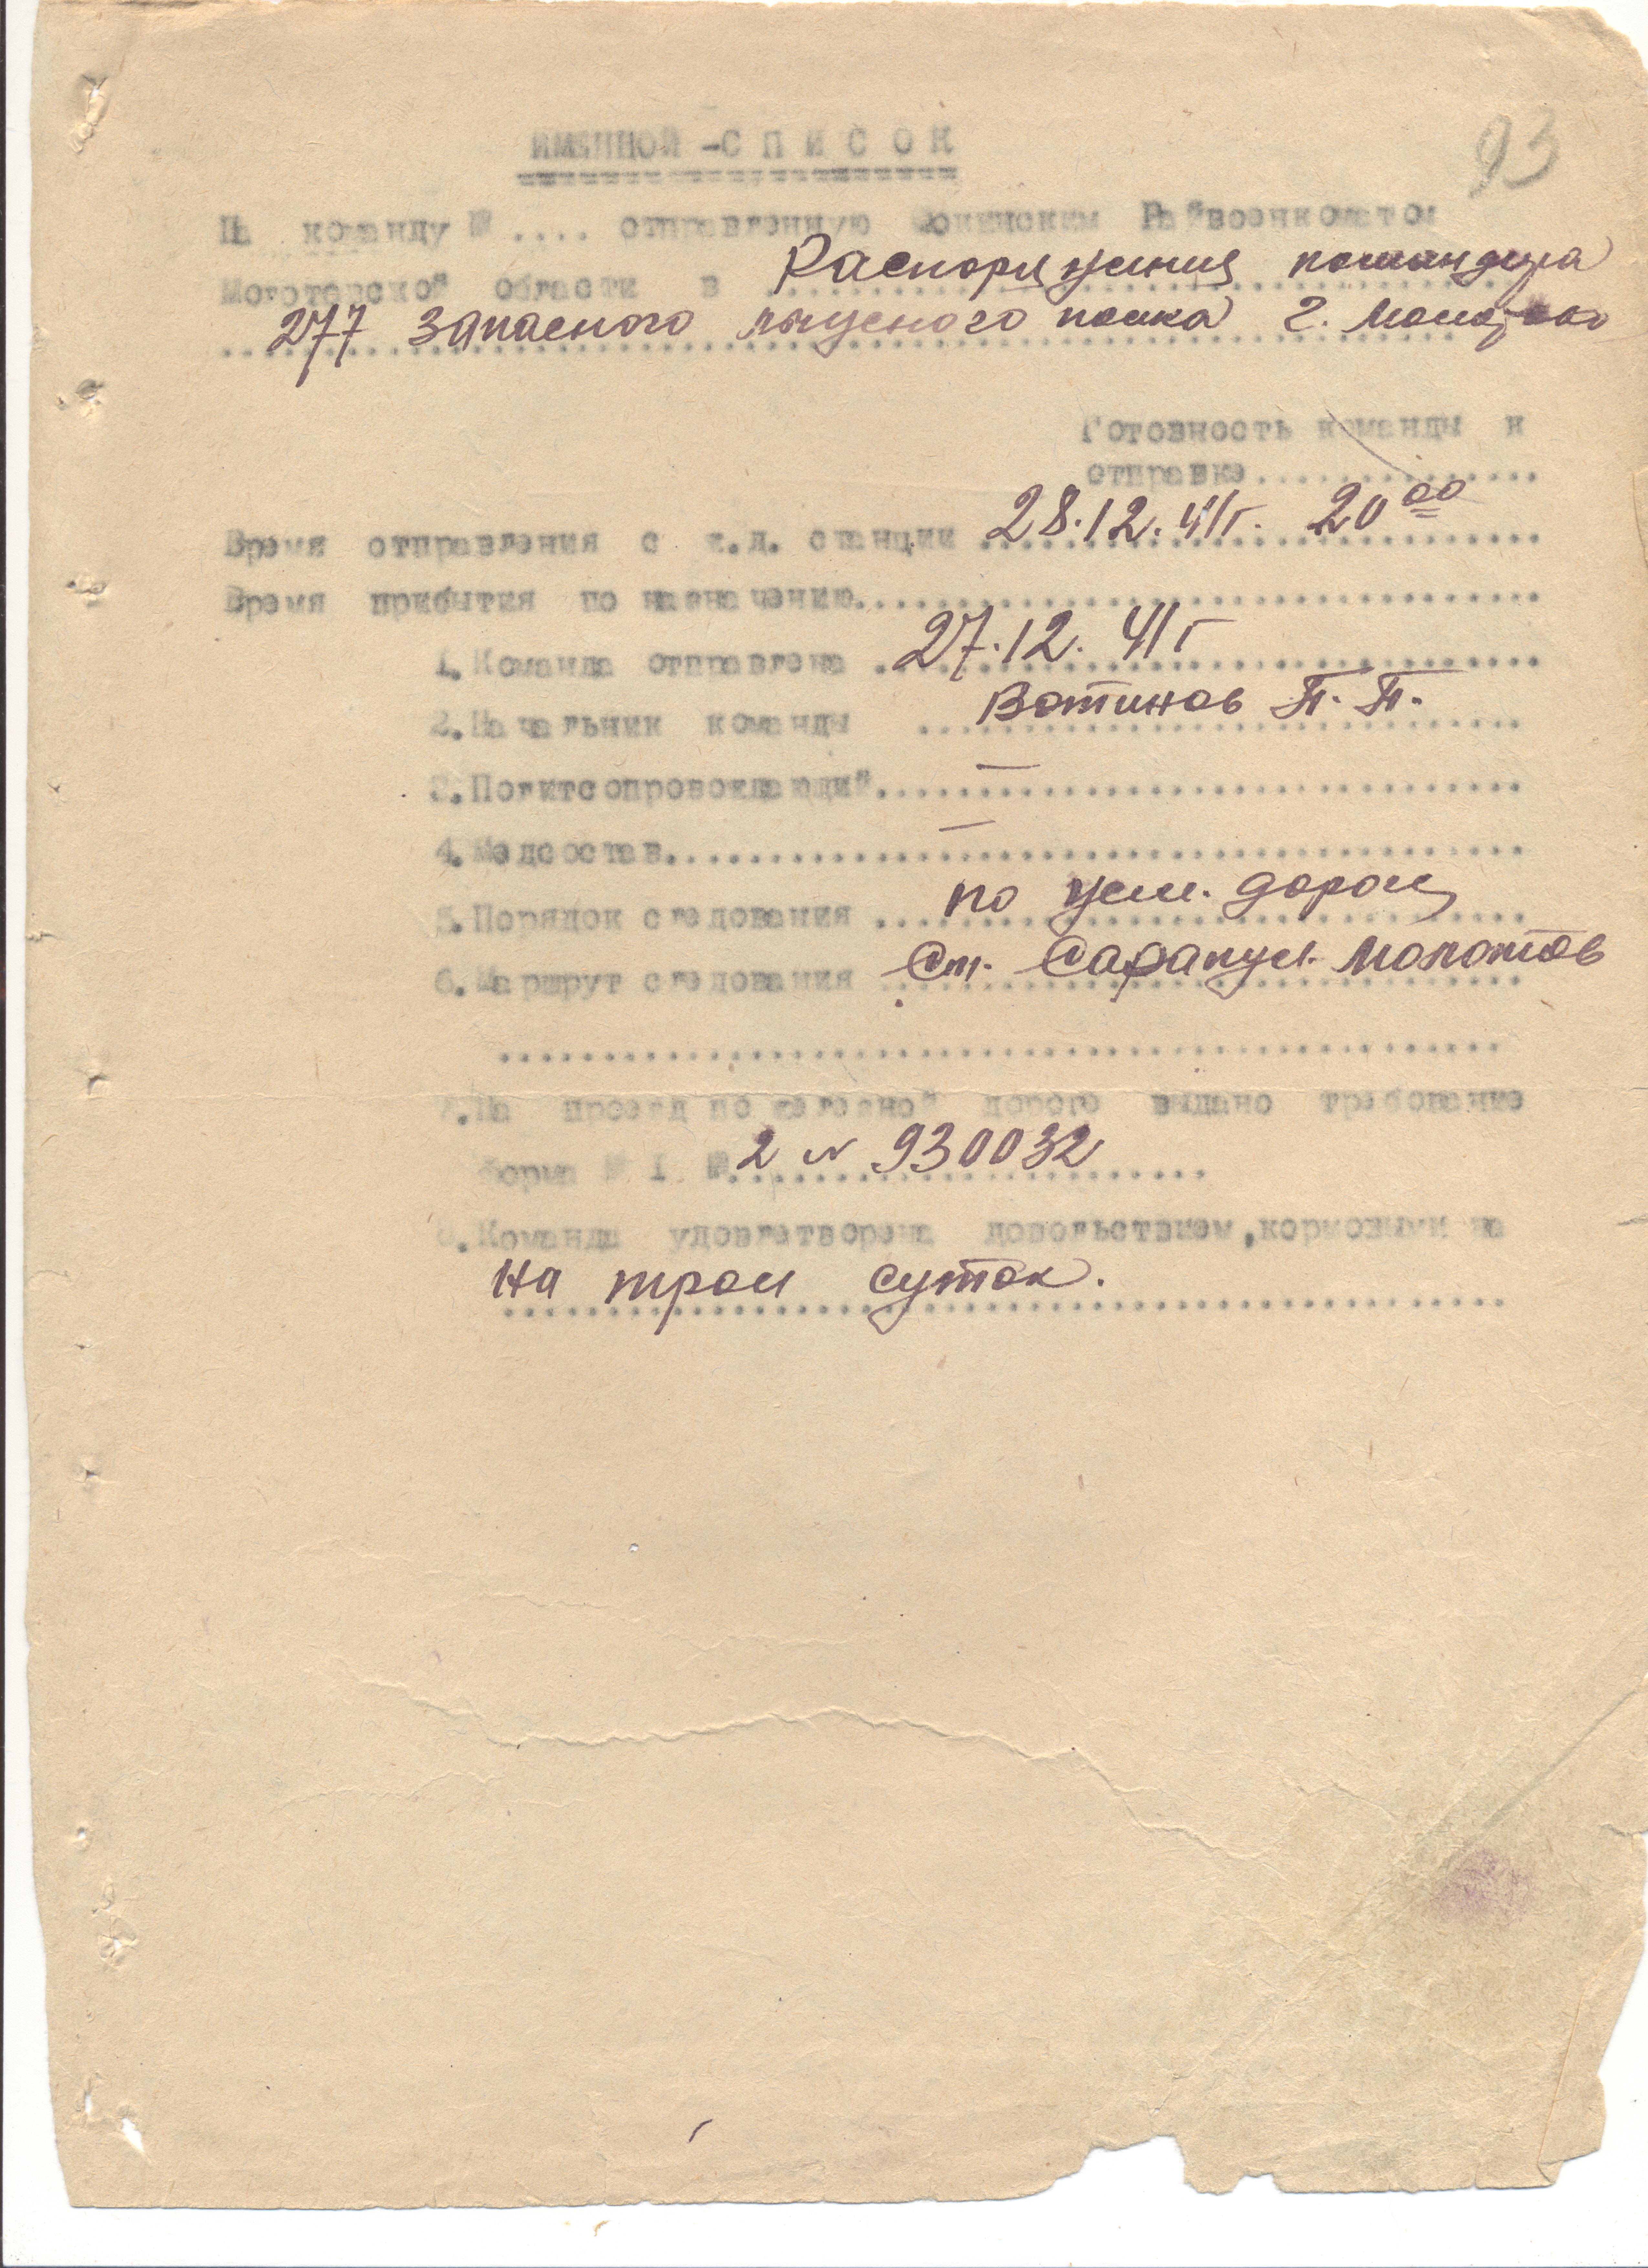 93
ИМЕННОЙ - С П И С О К
На команду № .... отправленную Фокинским Райвоенкоматом
Молотовской области в Распоряжения командира
277 запасного лыжного полка г. Молотов
Готовность команды к
отправке..............
Время отправления с ж.д. станции 28.12.41г. 20 00
Время прибытия по назначению..............
1. Команда отправлена 27.12.41г
2. Начальник команды Вотинов П. П.
3. Политсопровождающий —
4. Медсостав —
5. Порядок следования по жел. дороге
6. Маршрут следования Ст. Сарапул. Молотов
..............
7. На проезд по железной дороге выдано требование
форма № 1 № 2 № 930032
8. Команда удовлетворена довольствием, кормовыми на
на трои суток.